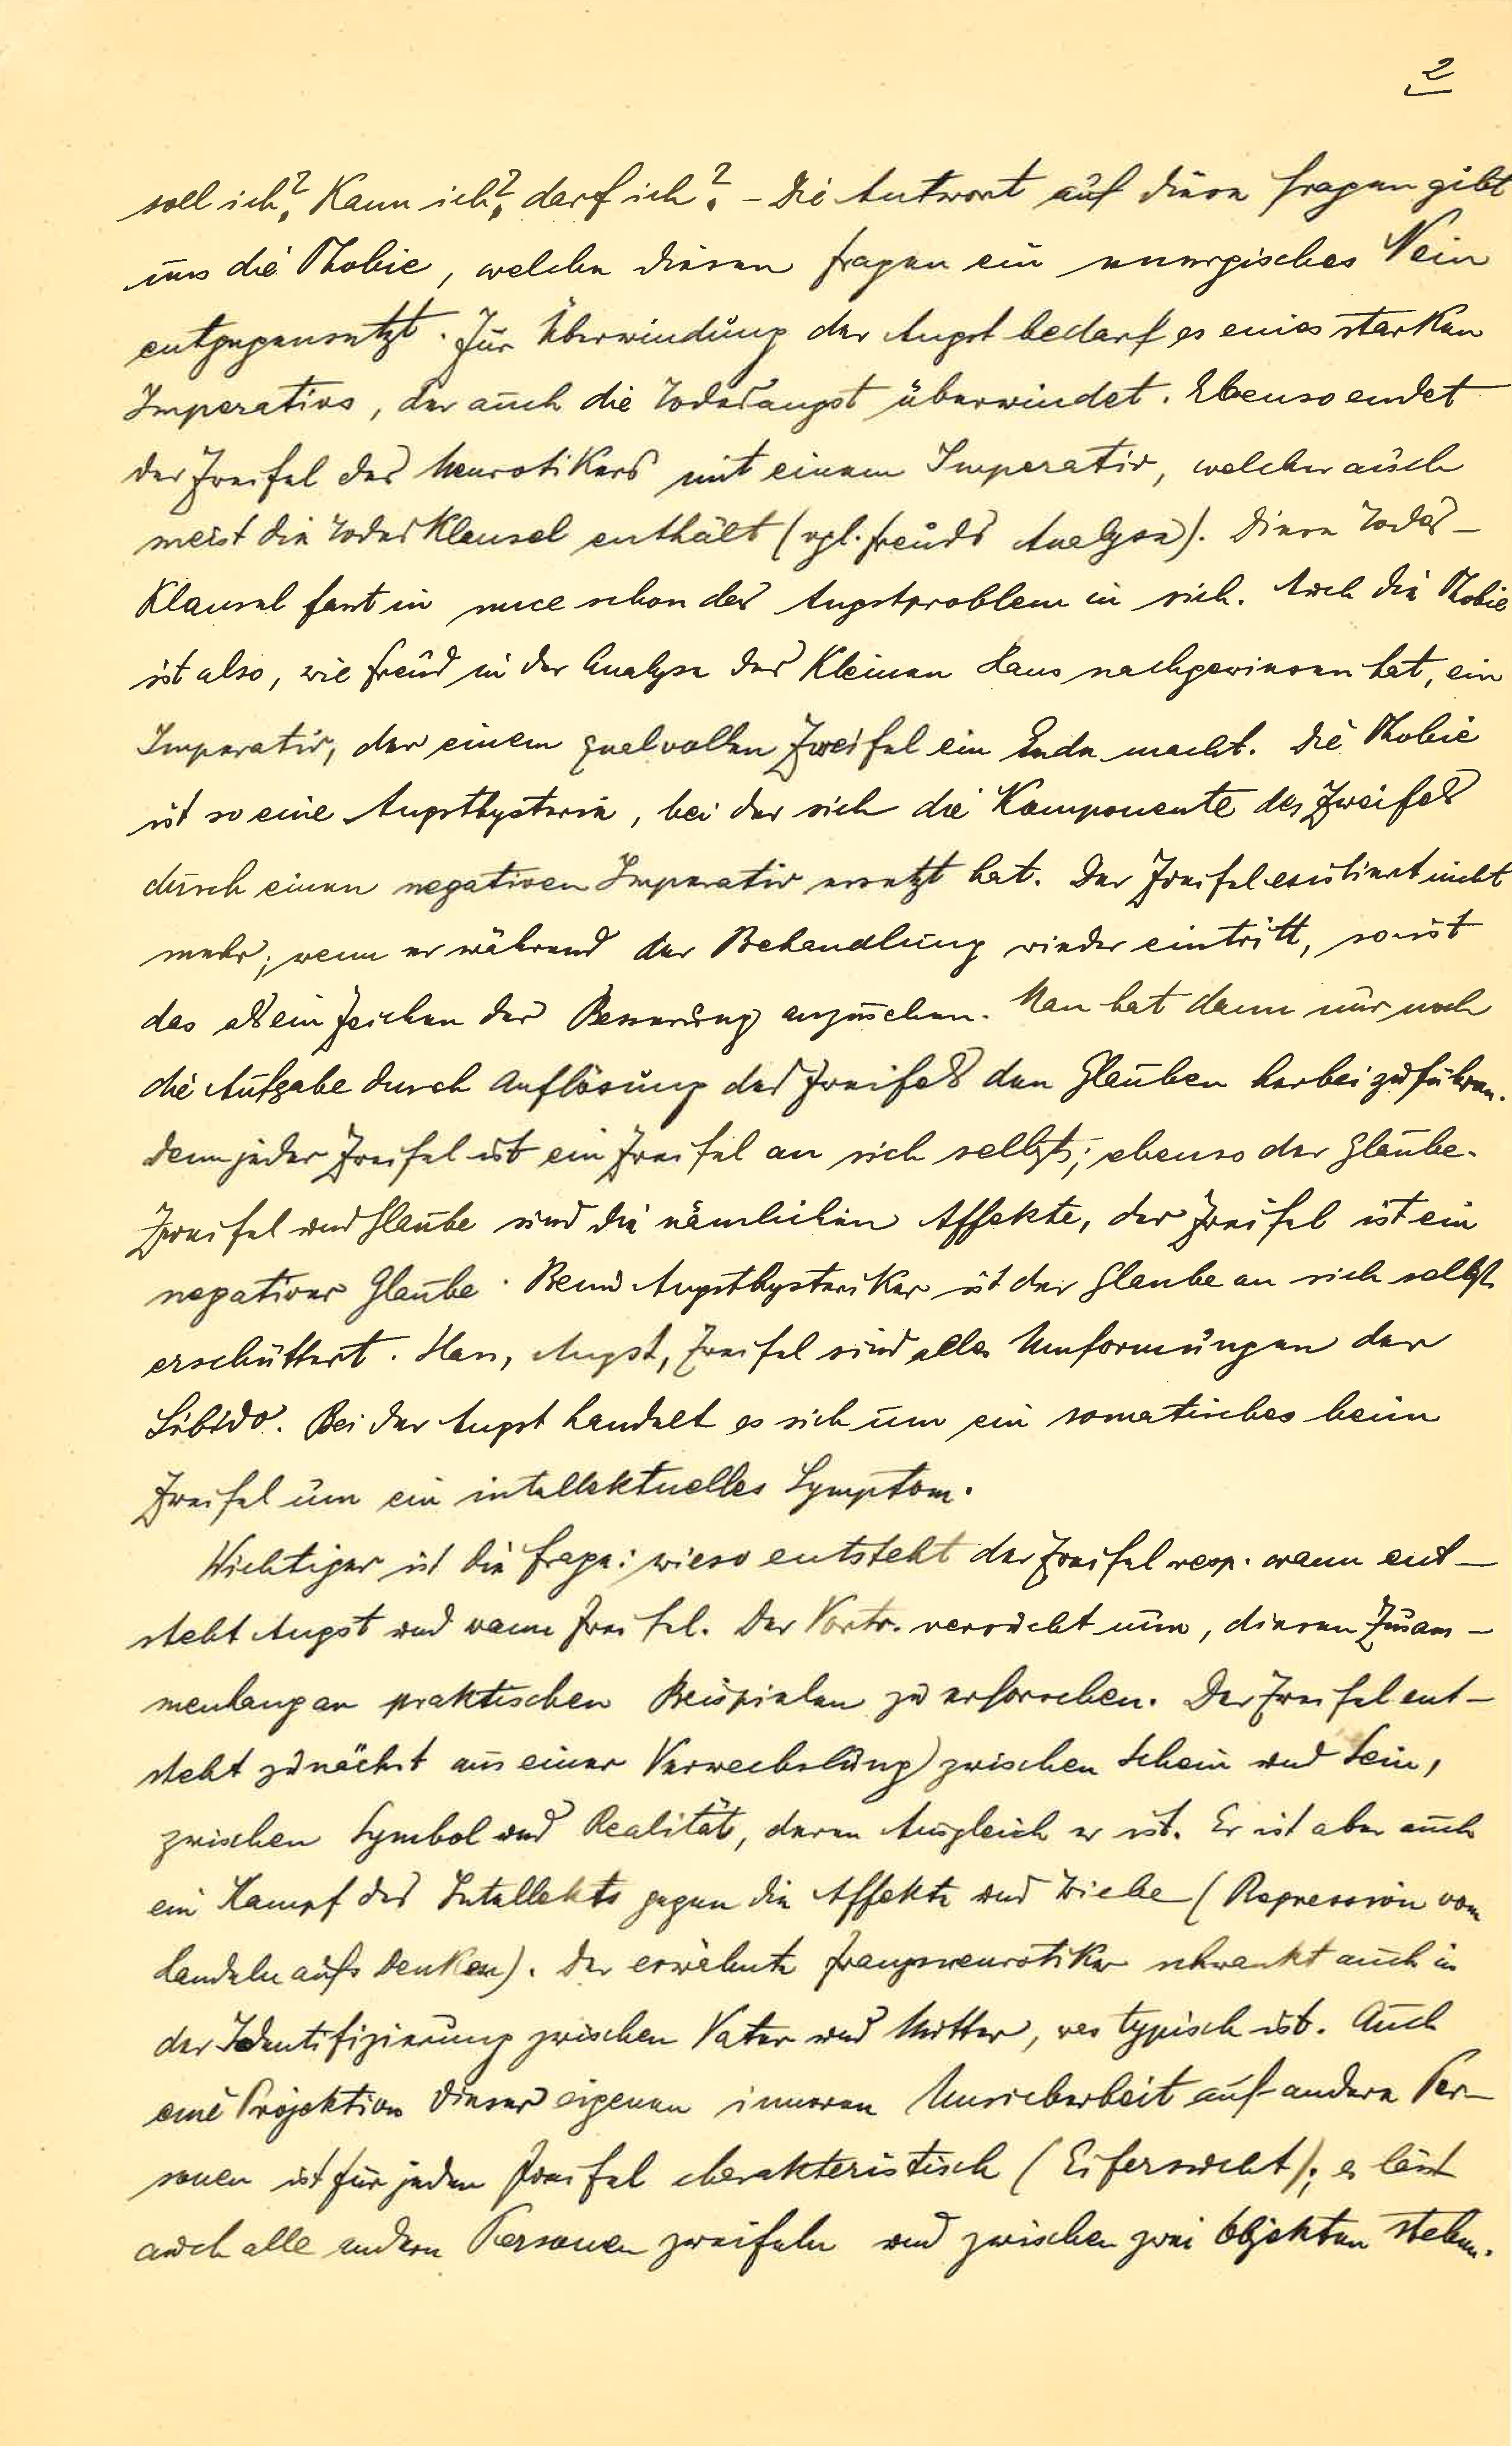 2
soll ich?, Kann ich?, darf ich? - Die Antwort auf diese Fragen gibt
uns die Phobie, welche diesen Fragen ein energisches Nein
entgegensetzt. Zur Überwindung der Angst bedarf es eines starken
Imperativs, der auch die Todesangst überwindet. Ebenso endet
der Zweifel des Neurotikers mit einem Imperativ, welcher auch
meist die Todesklausel enthält (vgl. Freuds Analyse). Diese Todes-
Klausel fasst in nuce schon das Angstproblem in sich. Auch die Phobie
ist also, wie Freud in der Analyse des Kleinen Hans nachgewiesen hat, ein
Imperativ, der einem qualvollen Zweifel ein Ende macht. Die Phobie
ist so eine Angsthysterie, bei der sich die Komponente des Zweifels
durch einen negativen Imperativ ersetzt hat. Der Zweifel existiert nicht
mehr; wenn er während der Behandlung wieder eintritt, so ist
das als ein Zeichen der Besserung anzusehen. Man hat dann nur noch
die Aufgabe durch Auflösung des Zweifels den Glauben herbeizuführen.
denn jeder Zweifel ist ein Zweifel an sich selbst; ebenso der Glaube.
Zweifel und Glaube sind die nämlichen Affekte, der Zweifel ist ein
negativer Glaube. Beim Angsthysteriker ist der Glaube an sich selbst
erschüttert. Hass, Angst, Zweifel sind alles Umformungen der
Libido. Bei der Angst handelt es sich um ein somatisches beim
Zweifel um ein intellektuelles Symptom.
Wichtiger ist die Frage: wieso entsteht der Zweifel resp. wann ent-
steht Angst und wann Zweifel. Der Vortr. versucht nun, diesen Zusam-
menhang an praktischen Beispielen zu erforschen. Der Zweifel ent-
steht zunächst aus einer Verwechslung zwischen Schein und Sein,
zwischen Symbol und Realität, deren Ausgleich er ist. Er ist aber auch
ein Kampf des Intellekts gegen die Affekte und Triebe (Regression vom
Handeln aufs Denken). Der erwähnte Zwangsneurotiker schwankt auch in
der Identifizierung zwischen Vater und Mutter, was typisch ist. Auch
eine Projektion dieser eigenen inneren Unsicherheit auf andere Per-
sonen ist für jeden Zweifel charakteristisch (Eifersucht); er lässt
auch alle andern Personen zweifeln und zwischen zwei Objekten stehen.